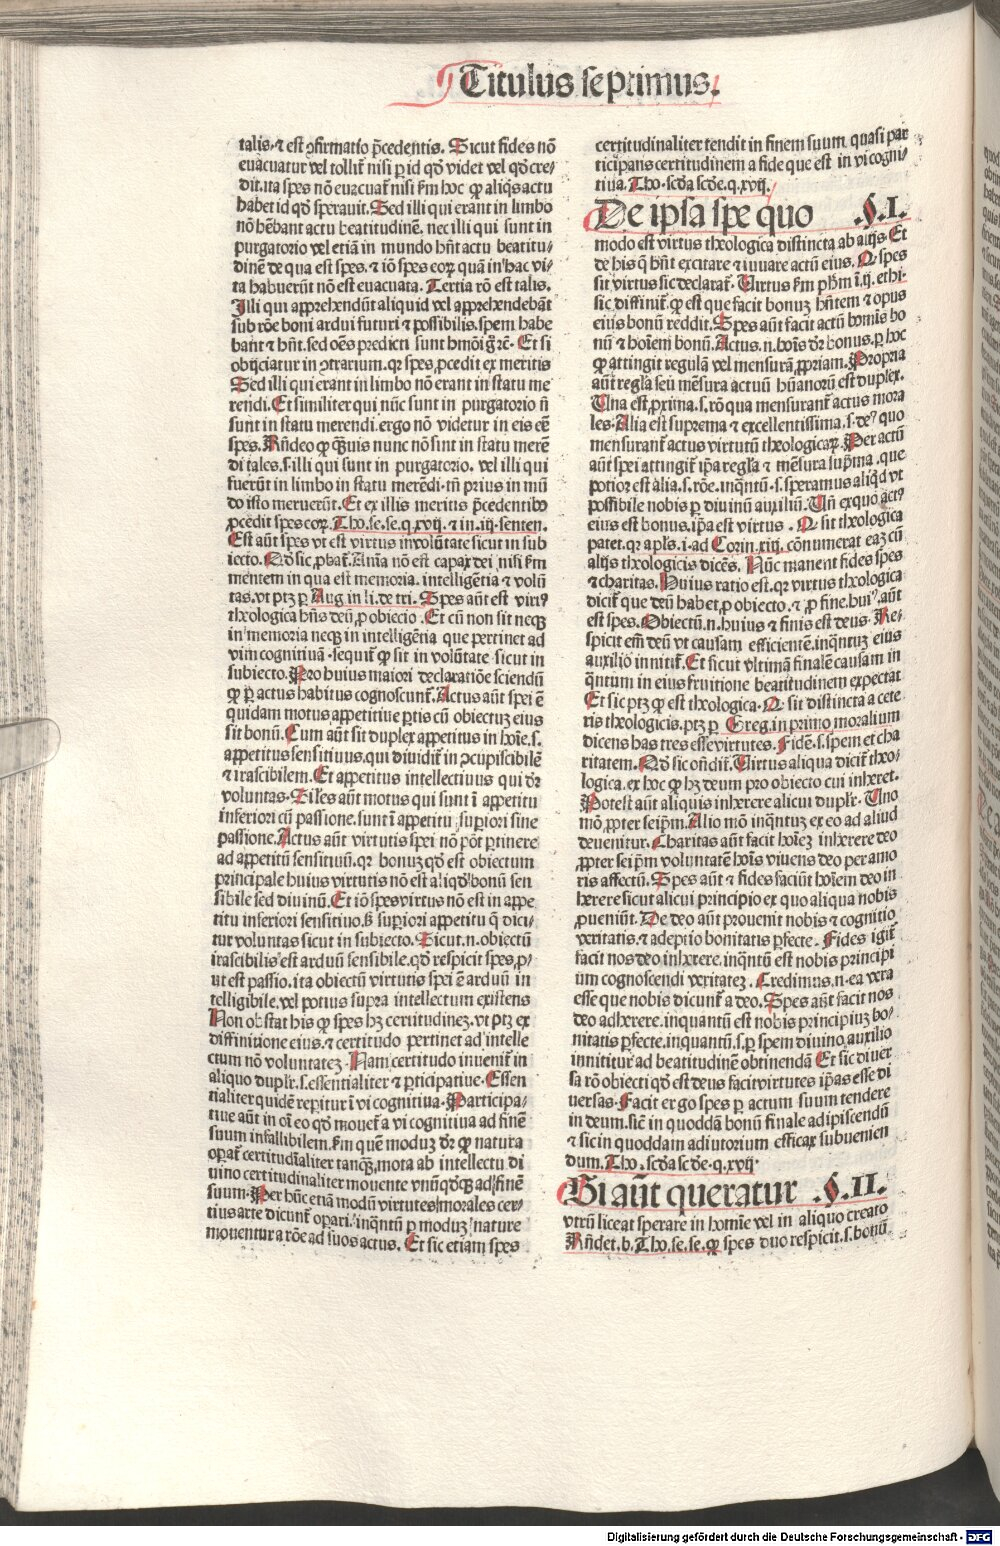 Titulus septimus.
talis. ⁊ est ꝯfirmatio p̄cedentis. Sicut fides nō
euacuatur vel tollit᷑ nisi ꝑ id qd̄ videt vel qd̄ cre⸗
dit. ita spes nō euacuat᷑ nisi ẜm hoc ꝙ aliq̄s actu
habet id qd̄ sperauit. Sed illi qui erant in limbo
nō hēbant actu beatitudinē. nec illi qui sunt in
purgatorio vel etiā in mundo hn̄t actu beatitu⸗
dinē de qua est spes. ⁊ iō spes eoꝝ quā in hac vi⸗
ta habuerūt nō est euacuata. Tertia rō est talis.
Illi qui apprehendūt aliquid vel apprehendebāt
sub rōe boni ardui futuri ⁊ possibilis. spem habe
bant ⁊ hn̄t. sed oēs predicti sunt hmōi g̊ rc̄. Et si
obijciatur in ꝯtrarium. qꝛ spes ꝓcedit ex meritis
Sed illi qui erant in limbo nō erant in statu me
rendi. Et similiter qui nūc sunt in purgatorio n̄
sunt in statu merendi. ergo nō videtur in eis eē
spes. Rn̄deo ꝙ q̄uis nunc nō sunt in statu merē
di tales. s. illi qui sunt in purgatorio. vel illi qui
fuerūt in limbo in statu merēdi. tn̄ prius in mū
do isto meruerūt. Et ex illis meritis p̄cedentibꝰ
ꝓcedit spes eoꝝ. Tho. se. se. q. xvij. ⁊ in. iij. senten.
Est aūt spes vt est virtus in volūtate sicut in sub
iecto. Qd̄ sic ꝓbat᷑. Aīma nō est capax dei nisi ẜm
mentem in qua est memoria. intelligētia ⁊ volū
tas. vt ptꝫ ꝑ Aug. in li. de tri. Spes aūt est virtꝰ
theologica hn̄s deū ꝓ obiecto. Et cū non sit neqꝫ
in memoria neqꝫ in intelligētia que pertinet ad
vim cognitiuā. sequit᷑ ꝙ sit in volūtate sicut in
subiecto. Pro huius maiori declaratiōe sciendū
ꝙ ꝑ actus habitus cognoscunt᷑. Actus aūt spei ē
quidam motus appetitiue ꝑtis cū obiectuꝫ eius
sit bonū. Cum aūt sit duplex appetitus in hoīe. s.
appetitus sensitiuus. qui diuidit᷑ in ꝯcupiscibilē
⁊ irascibilem. Et appetitus intellectiuus qui dr̄
voluntas. Siles aūt motus qui sunt ī appetitu
inferiori cū passione. sunt ī appetitu suꝑiori sine
passione. Actus aūt virtutis spei nō pōt ꝑtinere
ad appetitū sensitiuū. qꝛ bonuꝫ qd̄ est obiectum
principale huius virtutis nō est aliqd̄ bonū sen
sibile sed diuinū. Et iō spes virtus nō est in appe
titu inferiori sensitiuo. ſꝫ suꝑiori appetitu q̄ dici⸗
tur voluntas sicut in subiecto. Sicut. n. obiectū
irascibilis est arduū sensibile. qd̄ respicit spes. ꝓ⸗
ut est passio. ita obiectū virtutis spei ē arduū in
telligibile. vel potius supra intellectum existens
Non obstat his ꝙ spes hꝫ certitudinez. vt ptꝫ ex
diffinitione eius. ⁊ certitudo pertinet ad intelle
ctum nō voluntatez. Nam certitudo inuenit᷑ in
aliquo dupl̄r. s. essentialiter ⁊ ꝑticipatiue. Essen
tialiter quidē reꝑitur ī vi cognitiua. Participa⸗
tiue aūt in oī eo qd̄ mouet᷑ a vi cognitiua ad finē
suum infallibilem. ẜm quē moduꝫ dr̄ ꝙ natura
oꝑat᷑ certitudīaliter tanqꝫ mota ab intellectu di
uino certitudinaliter mouente vnūqd̄qꝫ ad finē
suum. Per hūc etiā modū virtutes morales cer⸗
tius arte dicunt᷑ oꝑari. inq̄ntū ꝑ moduꝫ nature
mouentur a rōe ad suos actus. Et sic etiam spes
certitudinaliter tendit in finem suum quasi par
ticipans certitudinem a fide que est in vi cogni⸗
tiua. Tho. scd̄a scd̄e. q. xvij.
De ipsa spe quo .§.I.
modo est virtus theologica distincta ab alijs. Et
de his q̄ hn̄t excitare ⁊ iuuare actū eius. Q spes
sit virtus sic declarat᷑. Uirtus ẜm ph̄m. i. ij. ethi⸗
sic diffinit᷑. ꝙ est que facit bonuꝫ hn̄tem ⁊ opus
eius bonū reddit. Spes aūt facit actū homīs bo
nū ⁊ hoīem bonū. Actus. n. hoīs dr̄ bonus. ꝑ hoc
ꝙ attingit regulā vel mensurā ꝓpriam. Propria
aūt regl̄a seu mēsura actuū hūanorū est duplex.
Una est ꝓxima. s. rō qua mensurant᷑ actus mora
les. Alia est suprema ⁊ excellentissima. s. deꝰ quo
mensurant᷑ actus virtutū theologicaꝝ. Per actū
aūt spei attingit᷑ ip̄a regl̄a ⁊ mēsura sup̄ma. que
potior est alia. s. rōe. inq̄ntū. s. speramus aliqd̄ vt
possibile nobis ꝑ diuinū auxiliū. Un̄ ex quo actꝰ
eius est bonus. ip̄a est virtus. Q sit theologica
patet. qꝛ apl̄s. i. ad Corin. xiij. cōnumerat eaꝫ cū
alijs theologicis dicēs. Nūc manent fides spes
⁊ charitas. Huius ratio est. qꝛ virtus theologica
dicit᷑ que deū habet ꝓ obiecto. ⁊ ꝓ fine. huiꝰ. aūt
est spes. Obiectū. n. huius ⁊ finis est deus. Re⸗
spicit em̄ deū vt causam efficientē. inq̄ntuꝫ eius
auxilio innitit᷑. Et sicut vltimā finalē causam in
q̄ntum in eius fruitione beatitudinem expectat
Et sic ptꝫ ꝙ est theologica. Q sit distincta a cete
ris theologicis. ptꝫ ꝑ Greg. in primo moralium
dicens has tres esse virtutes. Fidē. s. spem et cha
ritatem. Qd̄ sic on̄dit᷑. Uirtus aliqua dicit᷑ theo⸗
logica. ex hoc ꝙ hꝫ deum pro obiecto cui inheret.
Potest aūt aliquis inherere alicui dupl̄r. Uno
mō ꝓpter seip̄m. Alio mō inq̄ntuꝫ ex eo ad aliud
deuenitur. Charitas aūt facit hoīeꝫ inherere deo
ꝓpter seip̄m voluntatē hoīs viuens deo per amo
ris affectū. Spes aūt ⁊ fides faciūt hoīem deo in
herere sicut alicui principio ex quo aliqua nobis
ꝓueniūt. De deo aūt prouenit nobis ⁊ cognitio
veritatis. ⁊ adeptio bonitatis ꝑfecte. Fides igit᷑
facit nos deo inherere. inq̄ntū est nobis principi
um cognoscendi veritateꝫ. Credimus. n. ea vera
esse que nobis dicunt᷑ a deo. Spes aūt facit nos
deo adherere. inquantū est nobis principiuꝫ bo⸗
nitatis ꝑfecte. inquantū. s. ꝑ spem diuino auxilio
innititur ad beatitudinē obtinendā Et sic diuer
sa rō obiecti qd̄ est deus facit virtutes ip̄as esse di
uersas. Facit ergo spes ꝑ actum suum tendere
in deum. sic̄ in quoddā bonū finale adipiscendū
⁊ sic in quoddam adiutorium efficax subuenien
dum. Tho. scd̄a scd̄e. q. xvij.
Si aūt queratur .§.II.
vtrū liceat sperare in homīe vel in aliquo creato
Rn̄det. b. Tho. se. se. ꝙ spes duo respicit. s. bonū
Digitalisierung gefördert durch die Deutsche Forschungsgemeinschaft - DFG